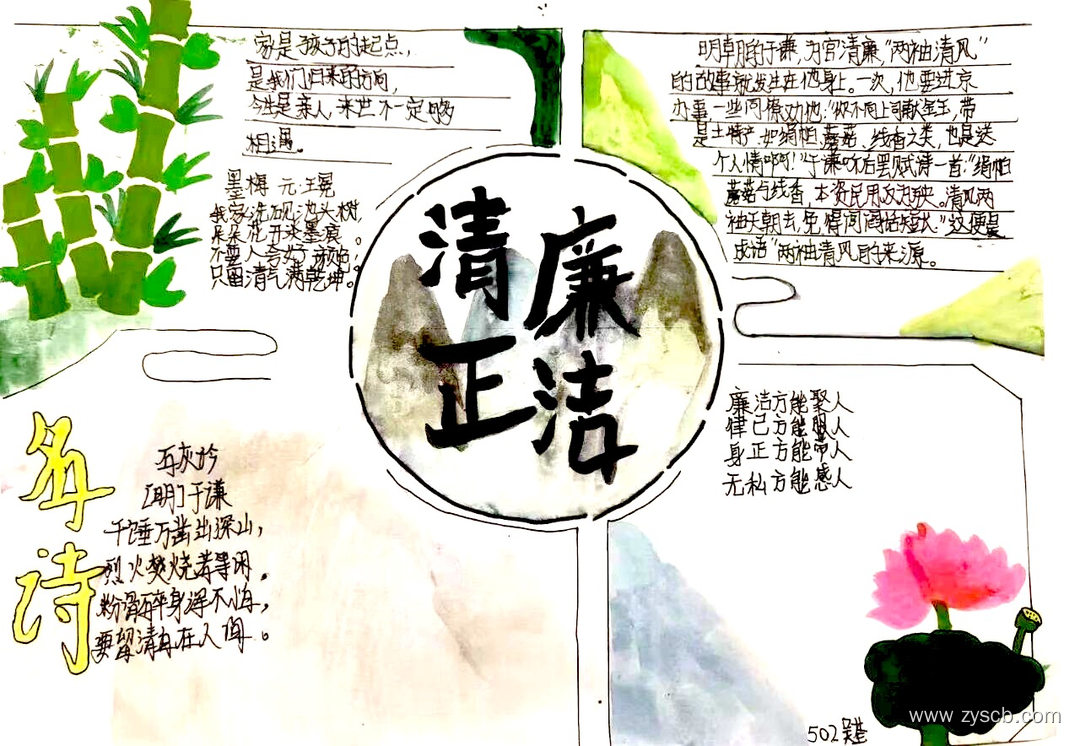 家是孩子的起点，
是我们归来的方向，
今生是亲人，来世不一定够
相遇。
墨梅 元 王冕
我家洗砚池头树，
朵朵花开淡墨痕。
不要人夸好颜色，
只留清气满乾坤。
清 廉
正 洁
明朝的于谦，为官清廉，"两袖清风"
的故事就发生在他身上。一次，他要进京
办事，一些同僚劝他："你不向上司献金玉，带
是土特产，如绢帕、蘑菇、线香之类，也是送
个人情啊！"于谦听后罢赋诗一首："绢帕
蘑菇与线香，本资民用反为殃。清风两
袖天朝去，免得闾阎话短长。"这便是
成语"两袖清风"的来源。
名诗
石灰吟
[明]于谦
千锤万凿出深山，
烈火焚烧若等闲，
粉骨碎身浑不怕，
要留清白在人间。
廉洁方能聚人
律己方能服人
身正方能带人
无私方能感人
502
www.zyscb.com